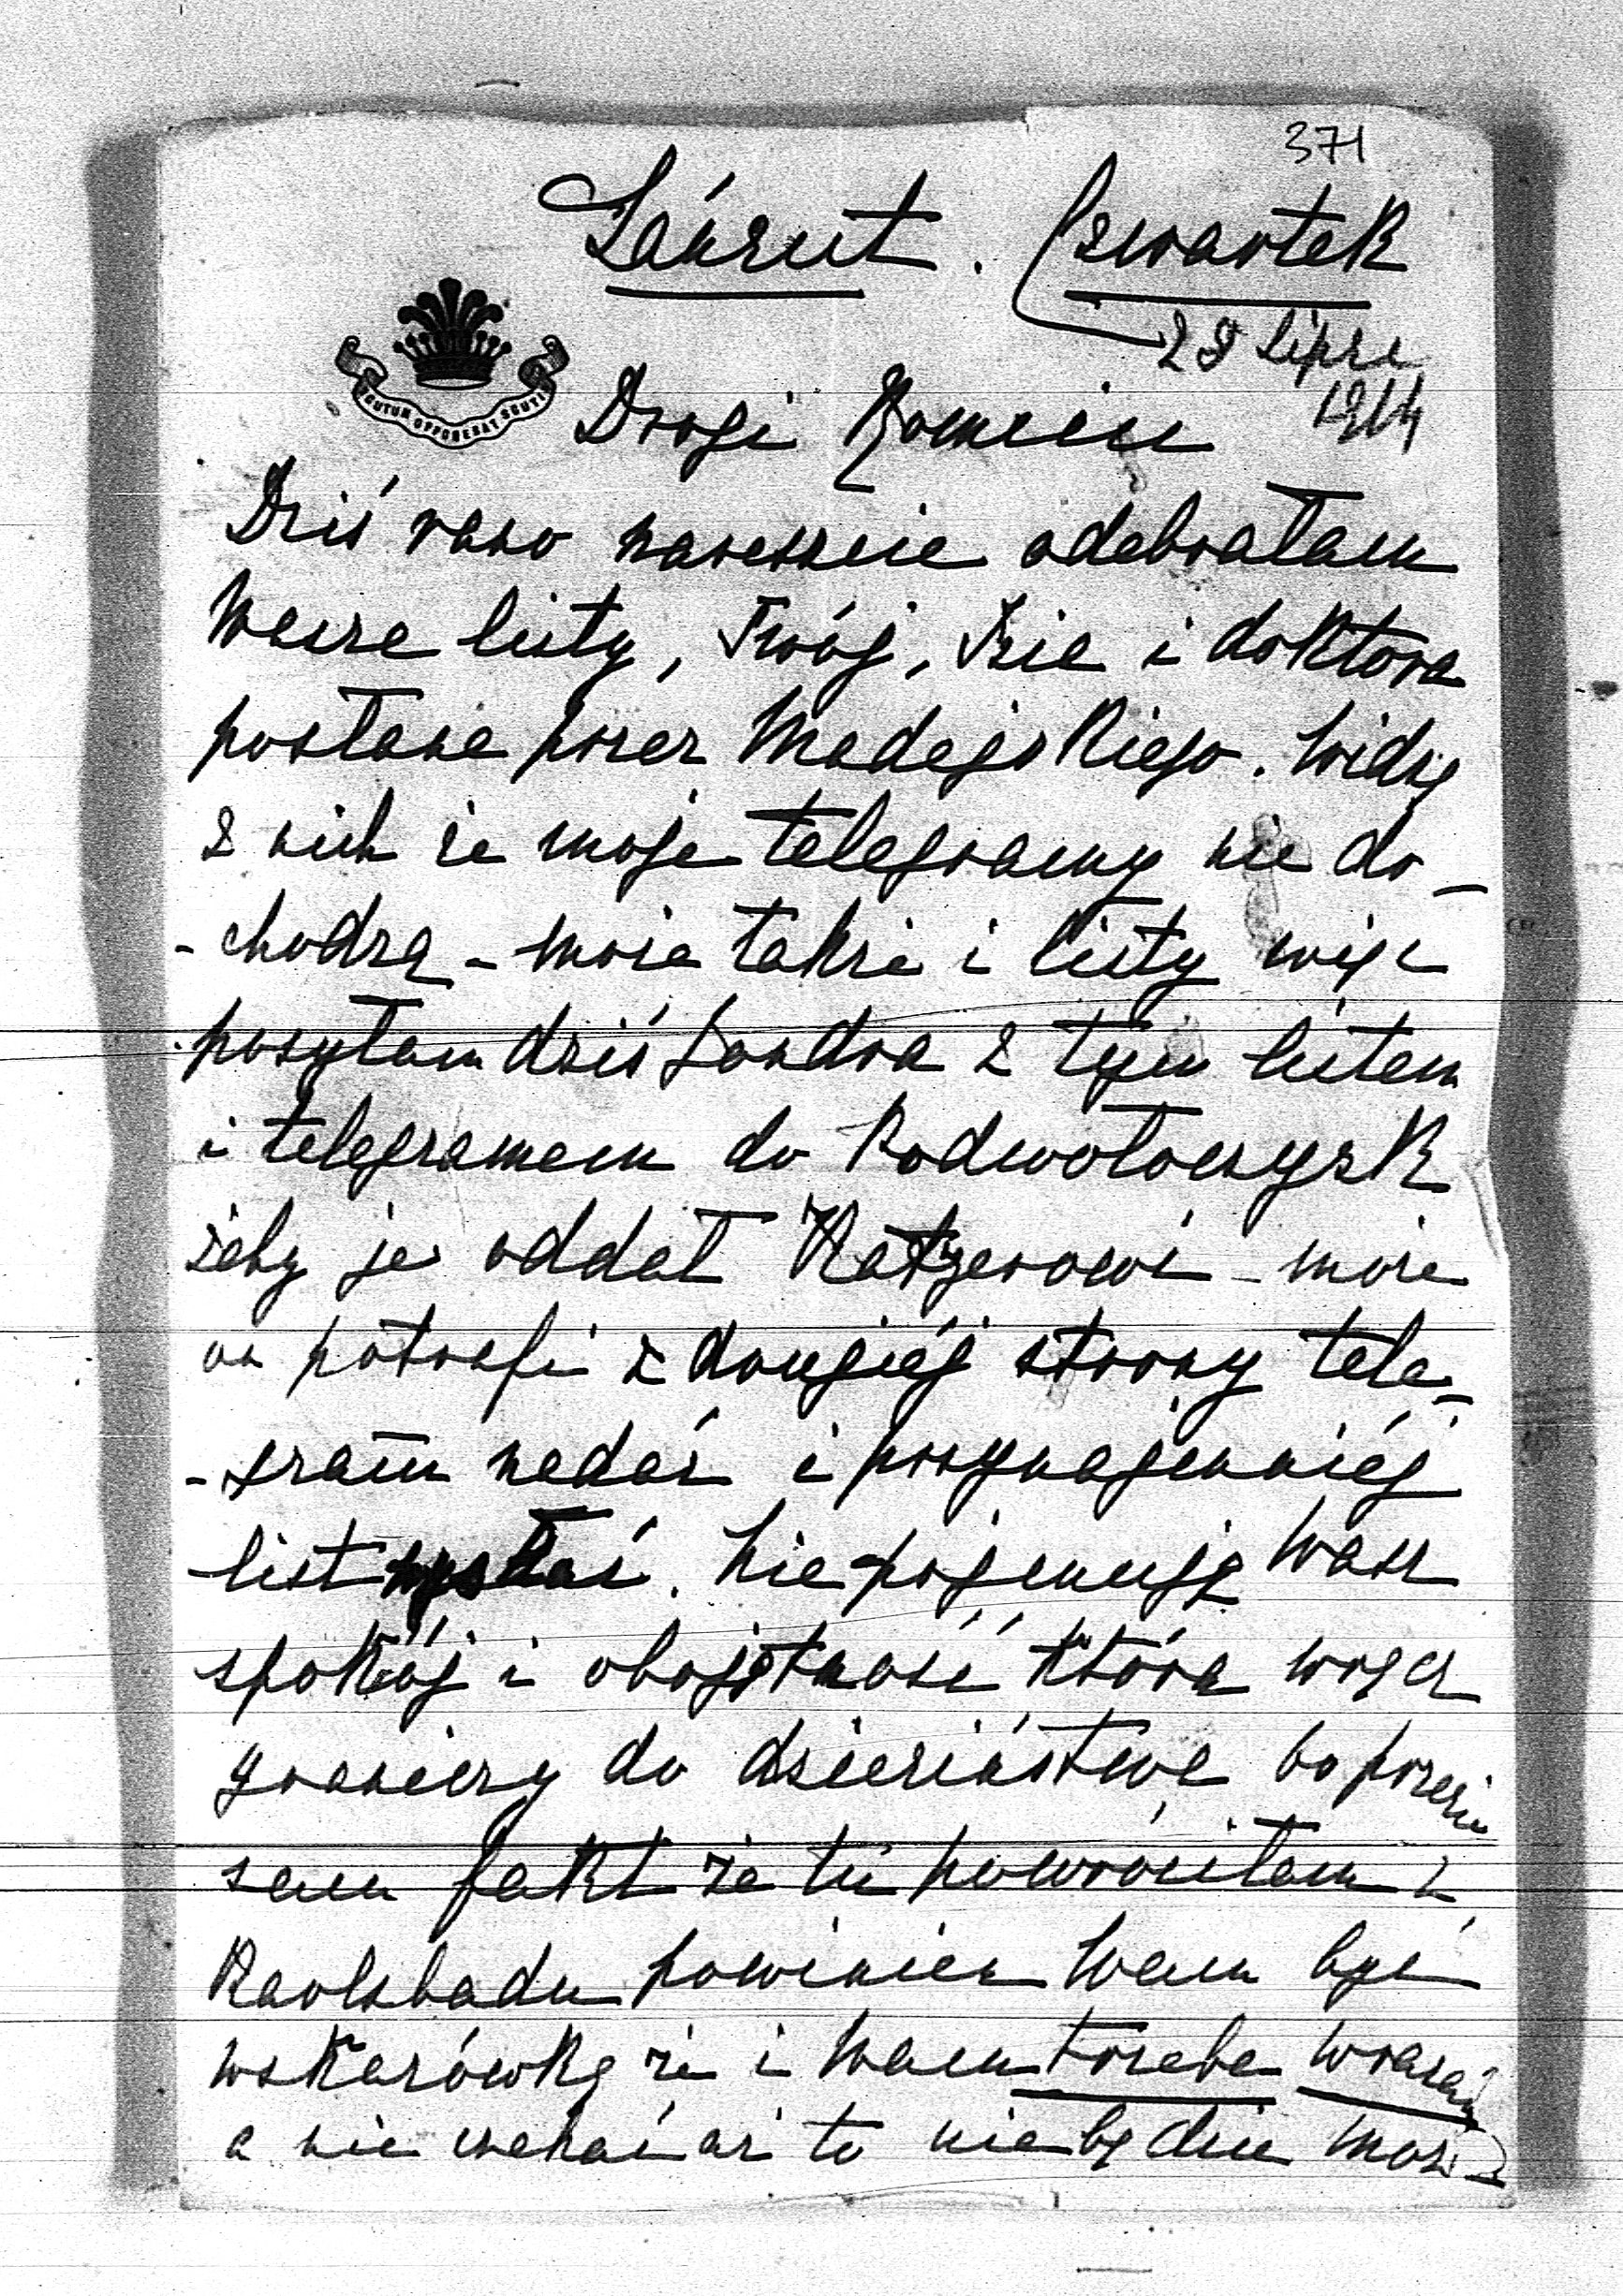 371
Łańcut. Czwartek
29 Lipca
1914
SCUTUM OPPONEBAT SCUTIS
Drogi Romciu
Dziś rano nareszcie odebrałam
Wasze listy, Twój, Izie i doktora
posłane przez Madejskiego. Widzę
z nich że moje telegramy nie do-
-chodzą - może także i listy więc
posyłam dziś Sandra z tym listem
i telegramem do Podwołoczysk
żeby je oddał - może
on potrafi z drugiéj strony tele-
-gram nadać i przynajmniéj
list wysłać. Nie pojmuję Wasz
spokój i obojętność która wręcz
graniczy do dzieciństwa bo przecie
sam fakt że tu powróciłam z
Karlsbadu powinien Wam być
wskazówką że i Wam trzeba wracać
a nie czekać aż to nie będzie moż